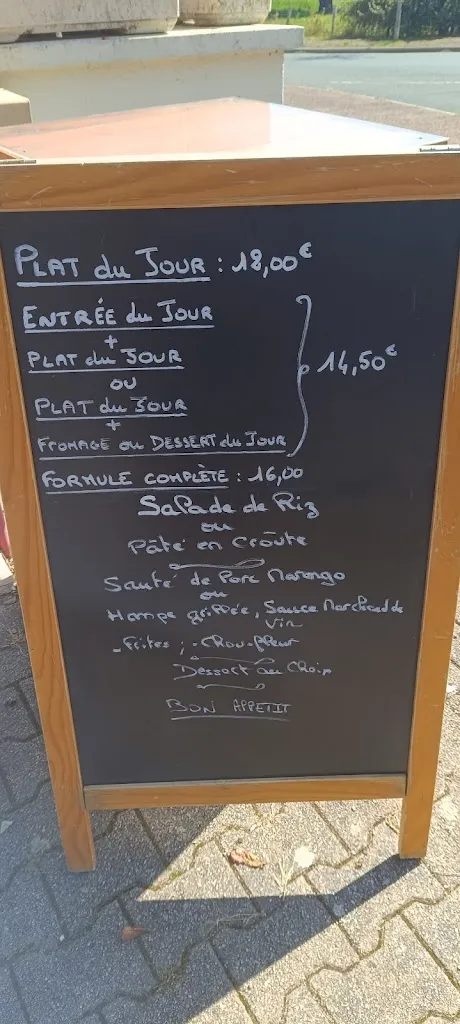 PLAT du JOUR : 12,00€
ENTRÉE du JOUR
+
PLAT du JOUR
OU
PLAT du JOUR
+
FROMAGE ou DESSERT du JOUR
14,50€
FORMULE COMPLÈTE : 16,00
Salade de Riz
ou
Pâté en Croûte
Sauté de Porc Marengo
ou
Hampe grillée, Sauce Marchand de
Vin
- Frites ; - Chou-fleur
Dessert au Choix
BON APPETIT